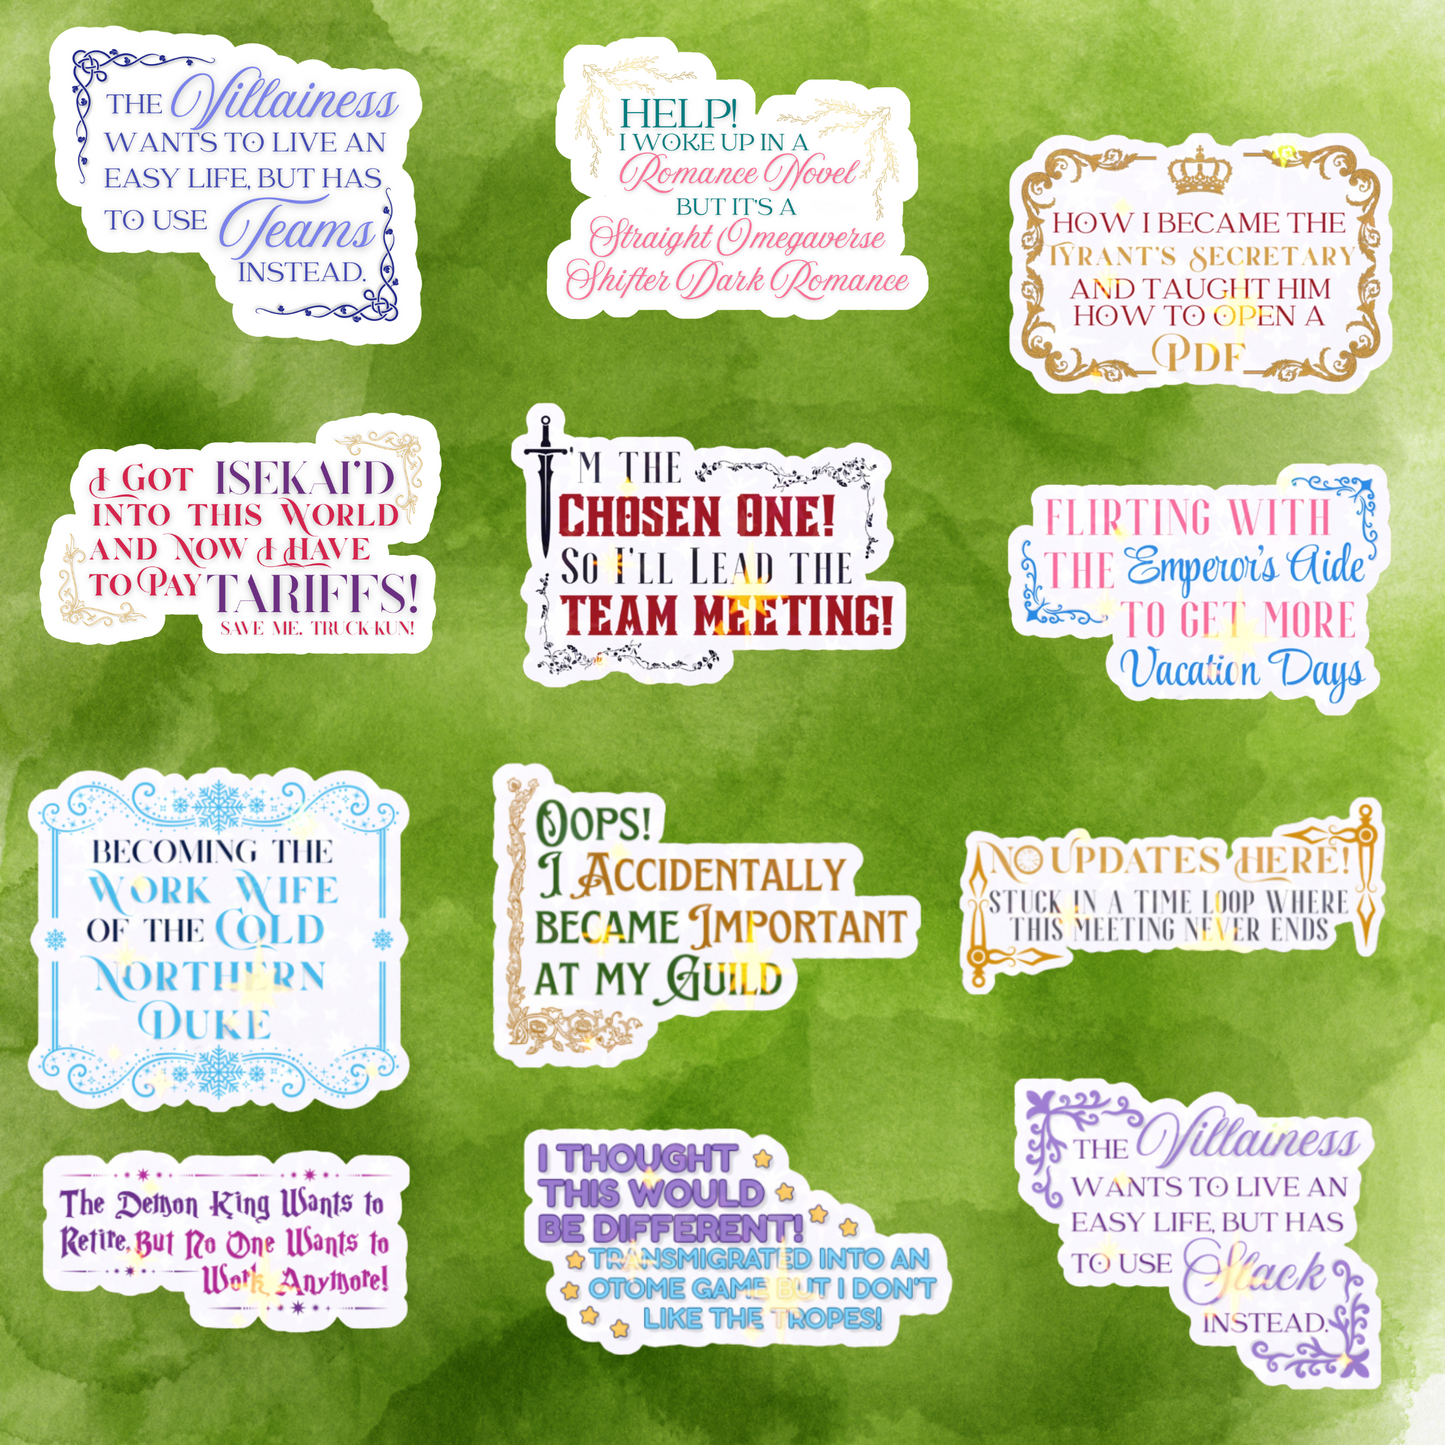 THE Villainess
WANTS TO LIVE AN
EASY LIFE, BUT HAS
TO USE Teams
INSTEAD.
HELP!
I WOKE UP IN A
Romance Novel
BUT IT'S A
Straight Omegaverse
Shifter Dark Romance
HOW I BECAME THE
TYRANT'S SECRETARY
AND TAUGHT HIM
HOW TO OPEN A
PDF
I GOT ISEKAI'D
INTO THIS WORLD
AND NOW I HAVE
TO PAY TARIFFS!
SAVE ME, TRUCK-KUN!
I'M THE
CHOSEN ONE!
SO I'LL LEAD THE
TEAM MEETING!
FLIRTING WITH
THE Emperor's Aide
TO GET MORE
Vacation Days
BECOMING THE
WORK WIFE
OF THE COLD
NORTHERN
DUKE
OOPS!
I ACCIDENTALLY
BECAME IMPORTANT
AT MY GUILD
NO UPDATES HERE!
STUCK IN A TIME LOOP WHERE
THIS MEETING NEVER ENDS
The Demon King Wants to
Retire, But No One Wants to
Work Anymore!
I THOUGHT
THIS WOULD
BE DIFFERENT!
TRANSMIGRATED INTO AN
OTOME GAME BUT I DON'T
LIKE THE TROPES!
THE Villainess
WANTS TO LIVE AN
EASY LIFE, BUT HAS
TO USE Slack
INSTEAD.